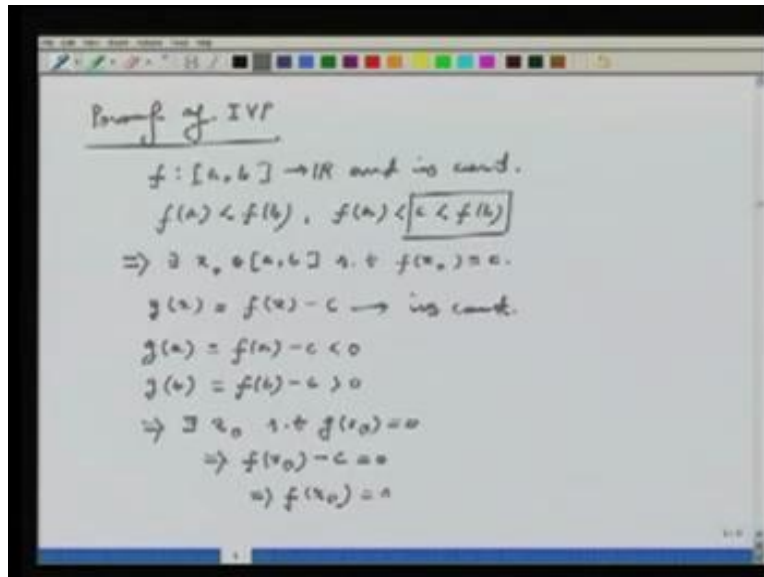 Proof of IVP
f : [a, b] → IR and is cont.
f(a) < f(b), f(a) < c < f(b)
⇒ ∃ x₀ ∈ [a, b] s.t f(x₀) = c.
g(x) = f(x) - c → is cont.
g(a) = f(a) - c < 0
g(b) = f(b) - c > 0
⇒ ∃ x₀ s.t g(x₀) = 0
⇒ f(x₀) - c = 0
⇒ f(x₀) = c